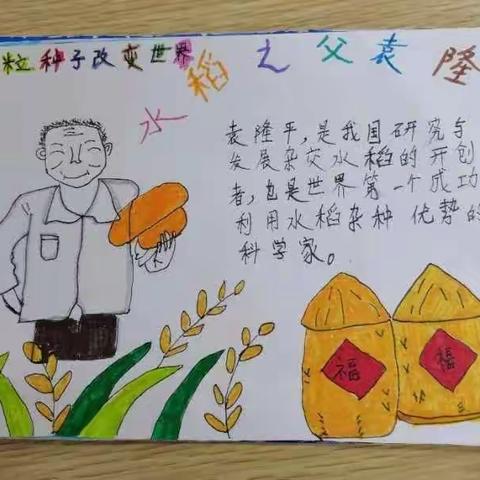 粒种子改变世界
水稻之父袁隆
袁隆平,是我国研究与
发展杂交水稻的开创
者,也是世界第一个成功
利用水稻杂种优势的
科学家。
福
福